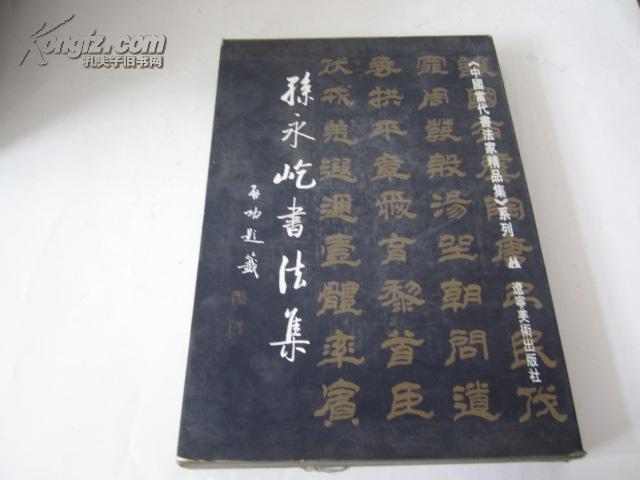 Kongfz.com
孔夫子旧书网
《中國當代書法家精品集》系列
遼寧美術出版社
孫永屹書法集
啟功題籤
讓國有虞陶唐弔民伐
罪周發殷湯坐朝問道
垂拱平章愛育黎首臣
伏戎羌遐邇壹體率賓